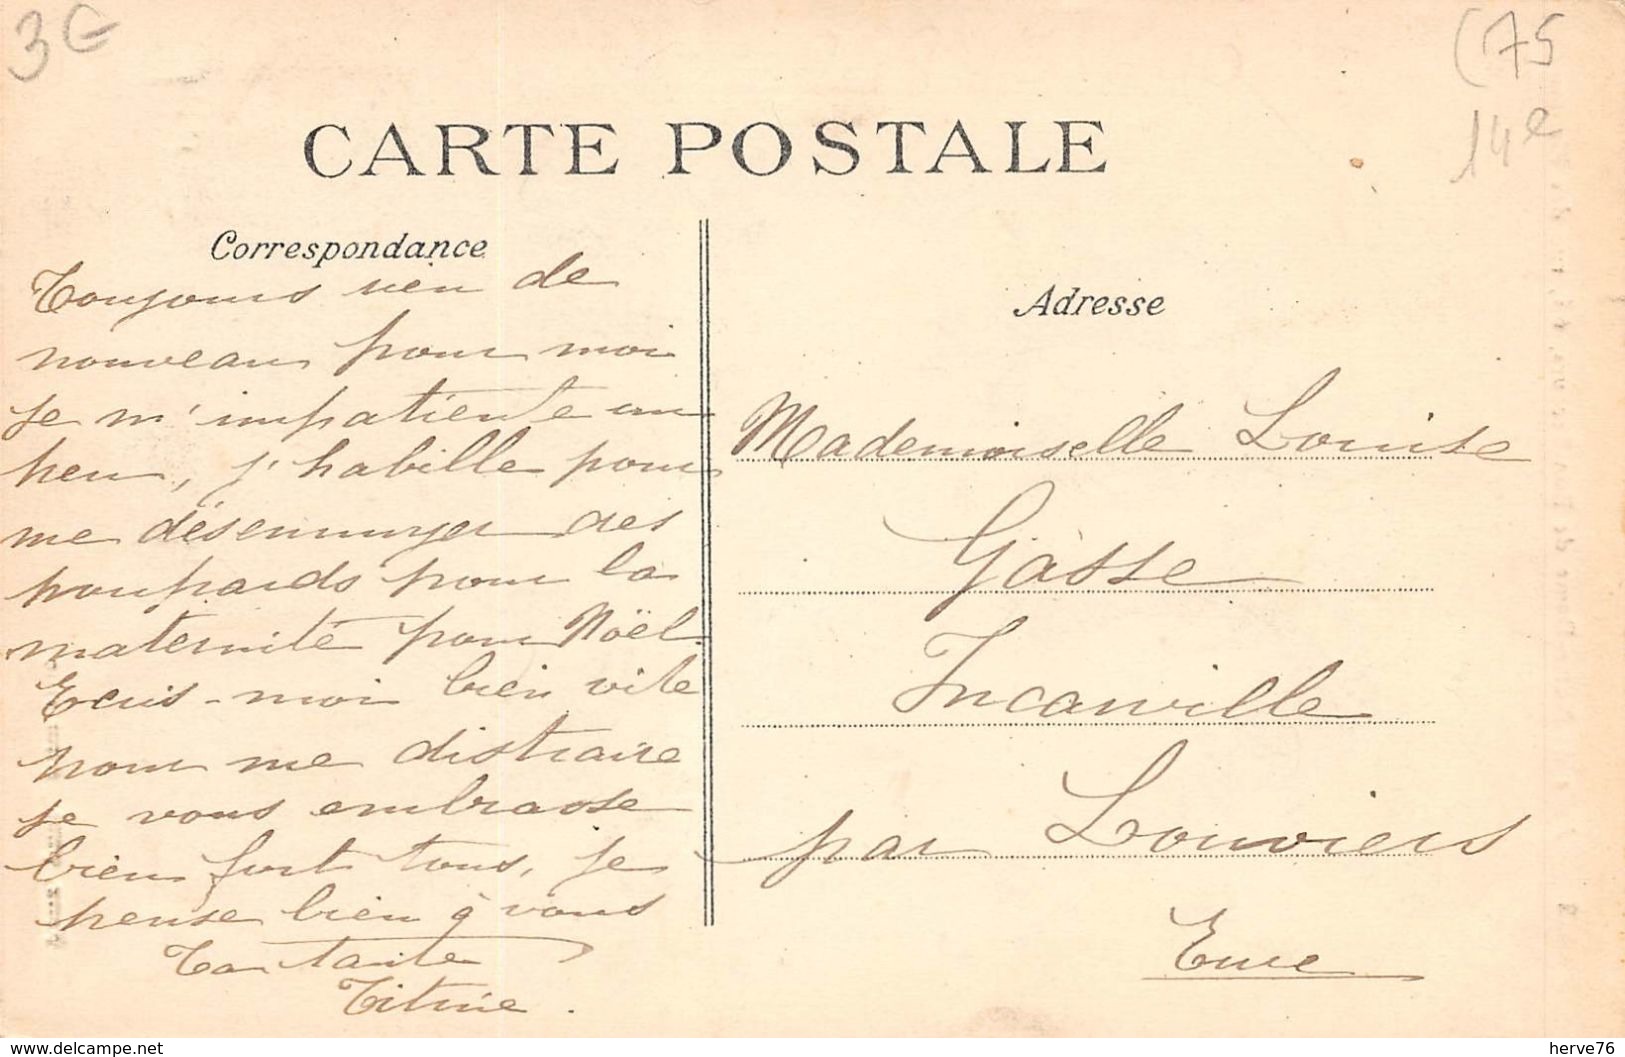 3€
(75
14e
CARTE POSTALE
Correspondance
Toujours rien de
nouveau pour moi
je m'impatiente un
peu, j'habille pour
me désennuyer des
poupards pour la
maternité pour Noël.
Ecris-moi bien vite
pour me distraire
je vous embrasse
bien fort tous, je
pense bien à vous
Ta tante
Titine.
Adresse
Mademoiselle Louise
Gasse
Incarville
par Louviers
Eure
delcampe.net
herve76